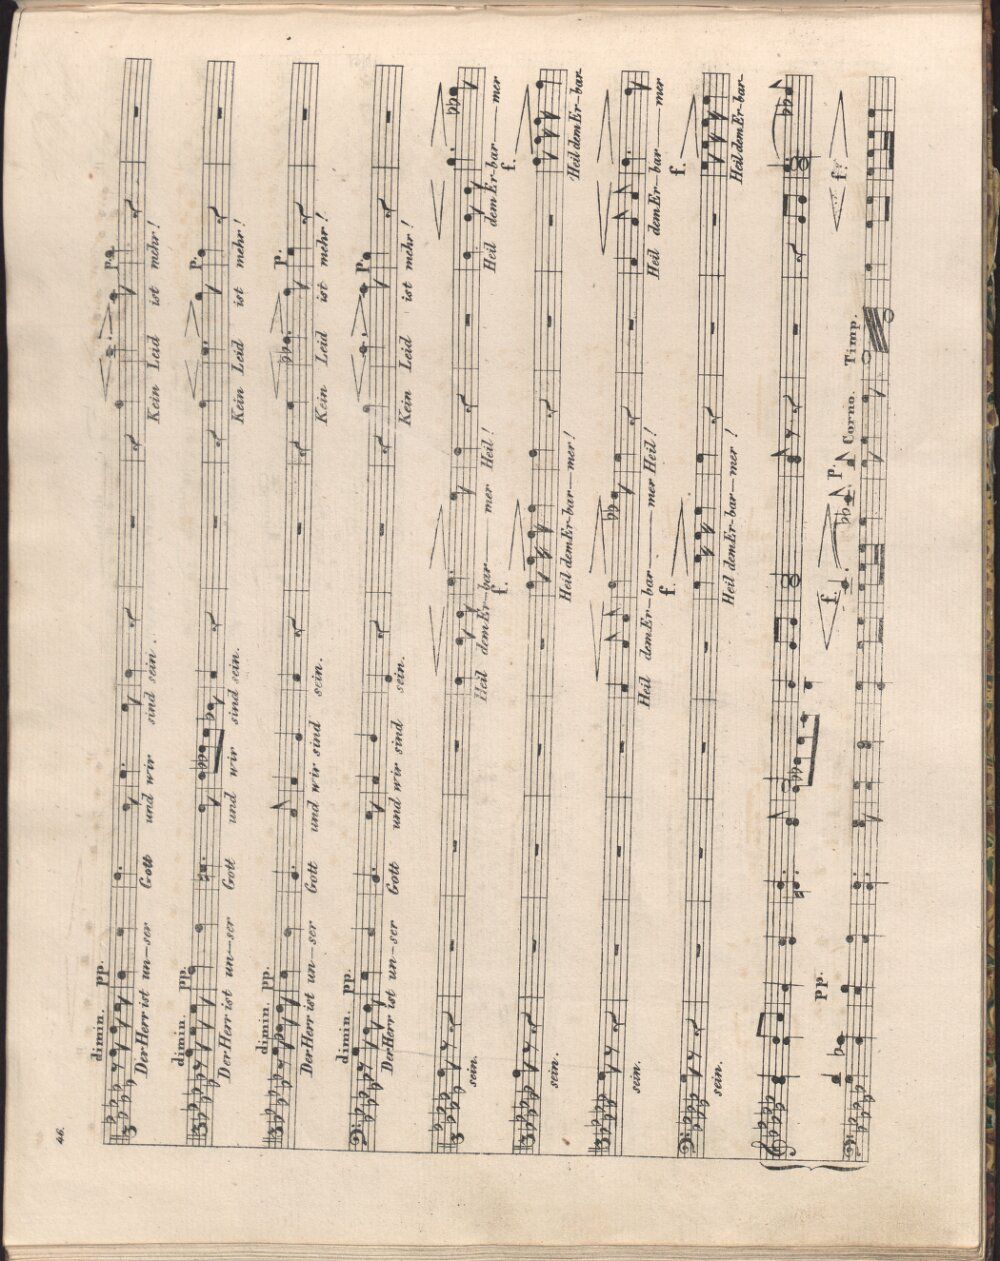 46.
dimin. pp. p.
Der Herr ist un—ser Gott und wir sind sein. Kein Leid ist mehr!
dimin. pp. p.
Der Herr ist un—ser Gott und wir sind sein. Kein Leid ist mehr!
dimin. pp. p.
Der Herr ist un—ser Gott und wir sind sein. Kein Leid ist mehr!
dimin. pp. p.
Der Herr ist un—ser Gott und wir sind sein. Kein Leid ist mehr!
sein. Heil dem Er-bar——mer Heil! Heil dem Er-bar——mer
f. f.
sein. Heil dem Er-bar—mer! Heil dem Er-bar-
sein. Heil dem Er—bar——mer Heil! Heil dem Er-bar——mer
f. f.
sein. Heil dem Er-bar—mer! Heil dem Er-bar-
pp. f. p. Corno. Timp. f.